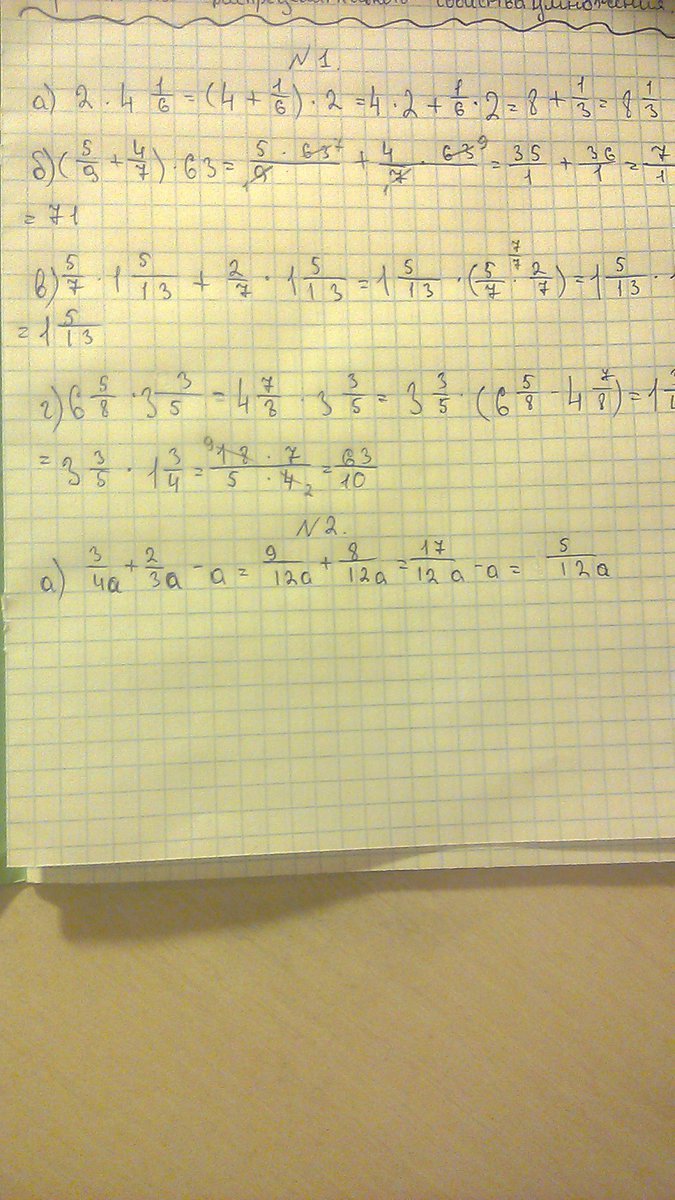 распределительного свойства умножения.
№1.
а) 2 · 4 1/6 = (4 + 1/6) · 2 = 4 · 2 + 1/6 · 2 = 8 + 1/3 = 8 1/3
б) (5/9 + 4/7) · 63 = 5 · 63 7/9 1 + 4/7 1 · 63 9 = 35/1 + 36/1 = 7/1
= 71
в) 5/7 · 1 5/13 + 2/7 · 1 5/13 = 1 5/13 · (5/7 · 2/7) 7/7 = 1 5/13 ·
= 1 5/13
г) 6 5/8 · 3 3/5 = 4 7/8 · 3 3/5 = 3 3/5 · (6 5/8 - 4 7/8) = 1
= 3 3/5 · 1 3/4 = 9 18 · 7 / 5 · 4 2 = 63/10
№2.
а) 3/4a + 2/3a - a = 9/12a + 8/12a = 17/12a - a = 5/12a